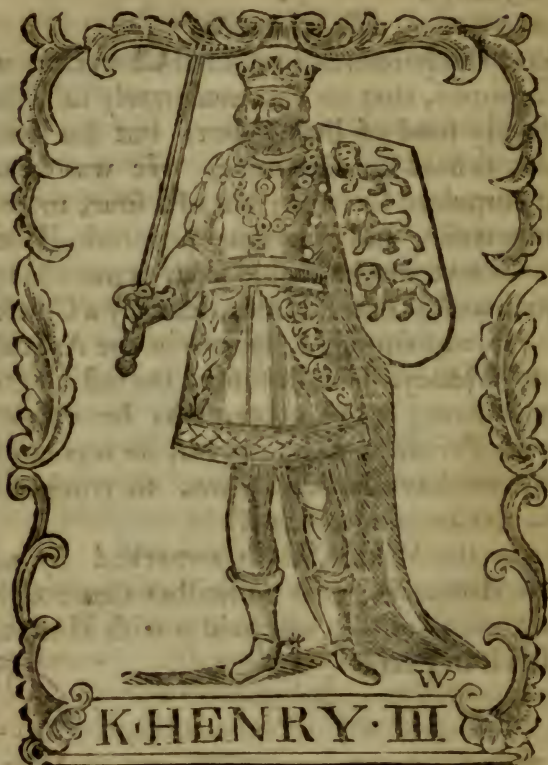 WP
K·HENRY·III